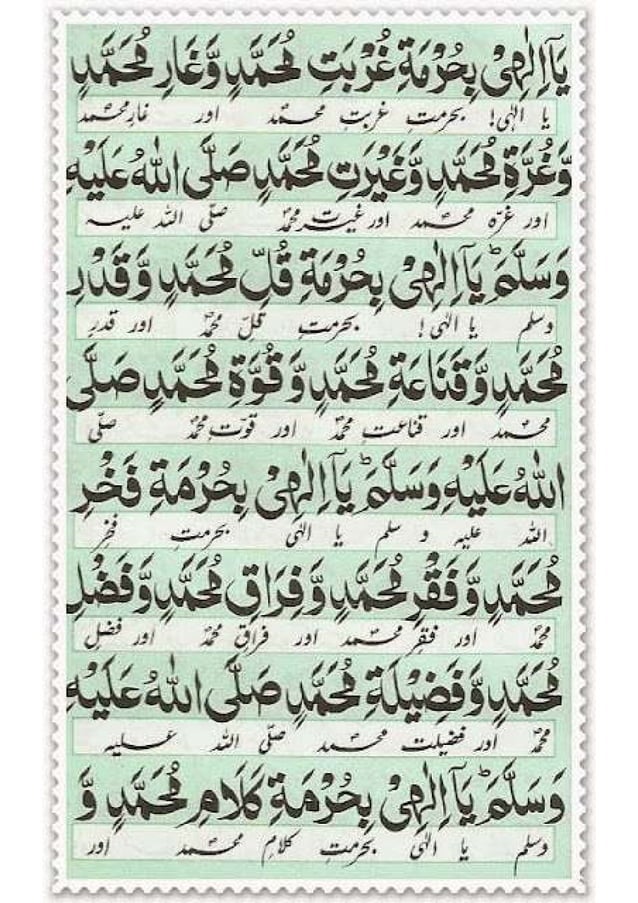 يَآ اِلٰهِىْ بِحُرْمَةِ غُرْبَتِ مُحَمَّدٍ وَّغَارِ مُحَمَّدٍ
یا الٰہی! بحرمتِ غربتِ محمّد اور غارِ محمّد
وَّغُرَّةِ مُحَمَّدٍ وَّغَيْرَتِ مُحَمَّدٍ صَلَّى اللهُ عَلَيْهِ
اور غرّہ محمّد اور غیرتِ محمّد صلّی اللہ علیہ
وَسَلَّمَ ؕ يَآ اِلٰهِىْ بِحُرْمَةِ قُلِّ مُحَمَّدٍ وَّقَدْرِ
وسلم یا الٰہی! بحرمتِ قلِّ محمّد اور قدرِ
مُحَمَّدٍ وَّقَنَاعَةِ مُحَمَّدٍ وَّقُوَّةِ مُحَمَّدٍ صَلَّى
محمّد اور قناعتِ محمّد اور قوّتِ محمّد صلّی
اللهُ عَلَيْهِ وَسَلَّمَ ؕ يَآ اِلٰهِىْ بِحُرْمَةِ فَخْرِ
اللہ علیہ و سلم یا الٰہی بحرمتِ فخرِ
مُحَمَّدٍ وَّفَقْرِ مُحَمَّدٍ وَّفِرَاقِ مُحَمَّدٍ وَّفَضْلِ
محمّد اور فقرِ محمّد اور فراقِ محمّد اور فضلِ
مُحَمَّدٍ وَّفَضِيْلَةِ مُحَمَّدٍ صَلَّى اللهُ عَلَيْهِ
محمّد اور فضیلت محمّد صلّی اللہ علیہ
وَسَلَّمَ ؕ يَآ اِلٰهِىْ بِحُرْمَةِ كَلَامِ مُحَمَّدٍ وَّ
وسلم یا الٰہی بحرمتِ کلامِ محمّد اور